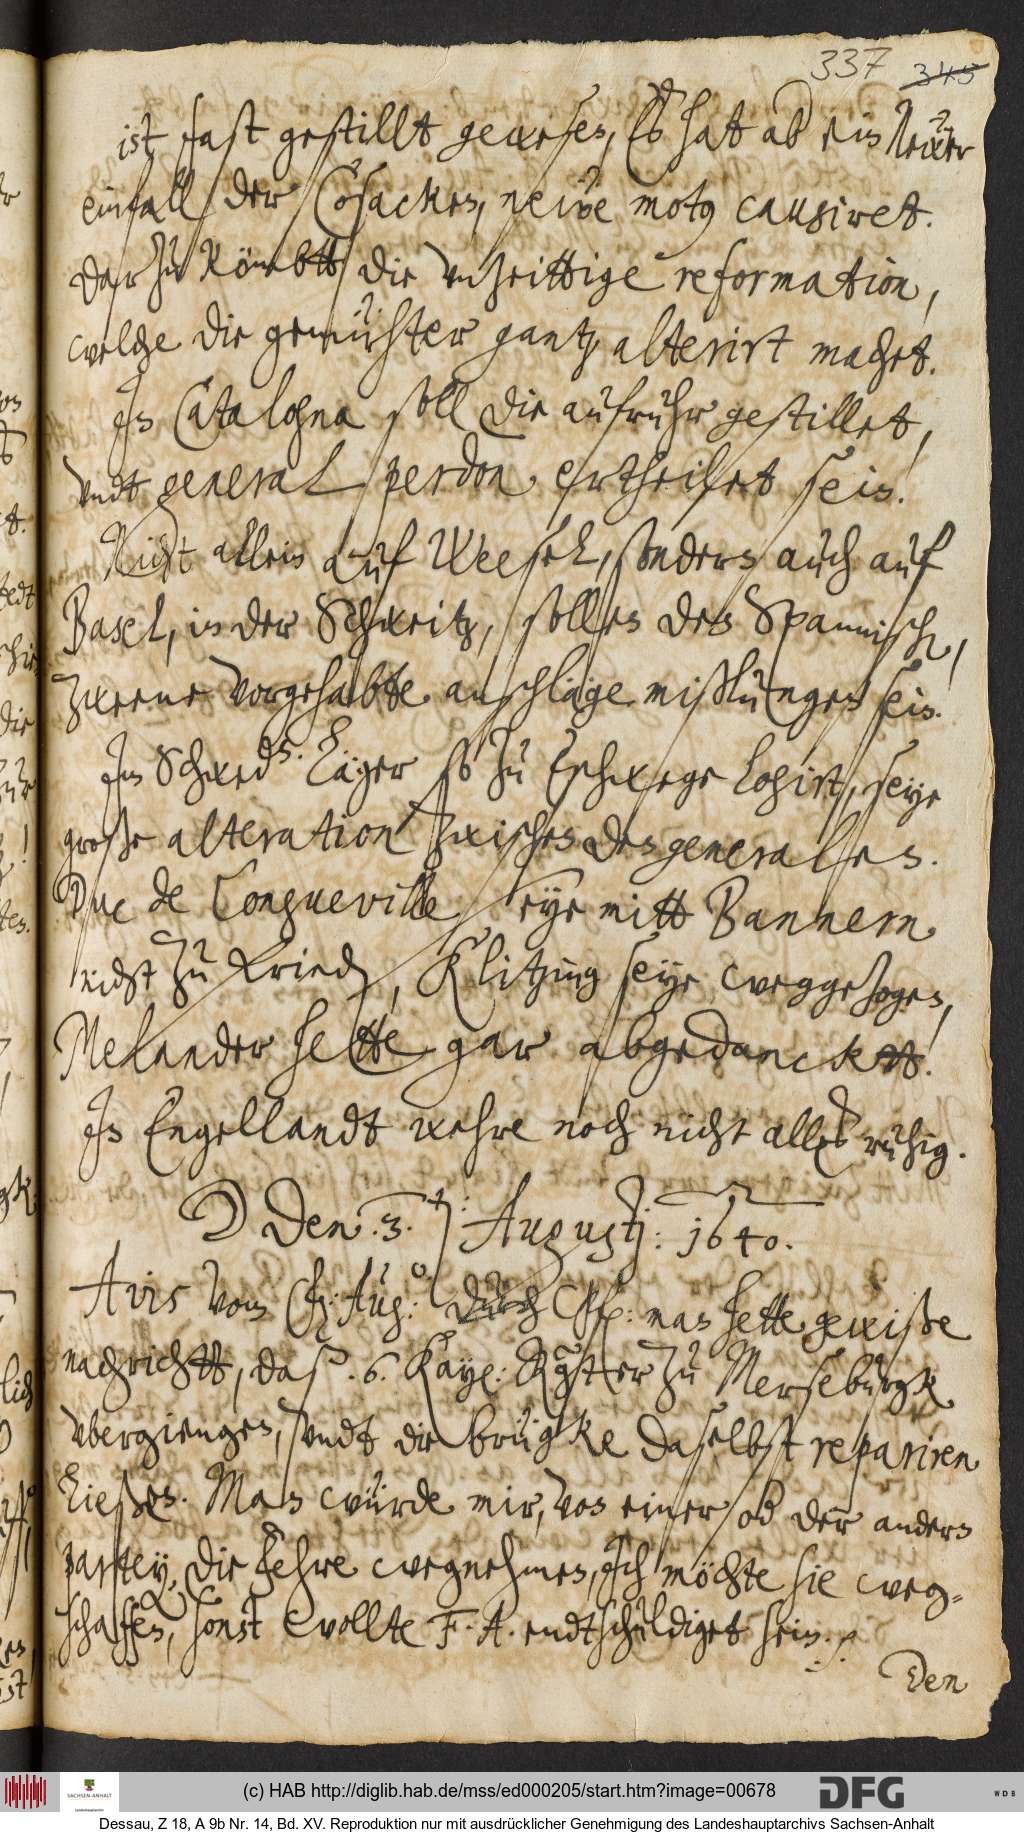 337 345
ist fast gestillt gewesen, Es hat ab ein Neẅer
einfall der Cosacken, neẅe motus causiret.
Der zu Römbtt die vnzeittige reformation,
welche die gemühter gantz alterirt machet.
In Catalogna soll die aufruhr gestillet,
vndt general perdon ertheilet sein.
Nicht allein auf Weesel, sondern auch auf
Basel, in der Schweitz, sollen den Spannisch,
zweene vorgehabte anschläge mißlungen sein.
Im Schwed. Läger so zu Eschwege logirt, seye
große alteration zwischen den generalen.
Duc de Longueville seye mitt Bannern
nicht zu frieden, Klitzing seye weggezogen,
Melander hette gar abgedanckett.
In Engellandt wehre noch nicht alles ruhig.
Den: 3. Augustj: 1640.
Avis vom Aug: durch man hette gewiße
nachrichtt, daß .6. Kayß: Rgtter zu Merseburgk
vbergiengen, vndt die brügke daselbst repariren
ließen. Man würde mir, von einer od der andern
partey, die Fehre wegnehmen, Ich möchte sie weg-
schaffen, sonst wollte F. A. endtschuldiget sein.
Den
(c) HAB http://diglib.hab.de/mss/ed000205/start.htm?image=00678
SACHSEN-ANHALT
Landeshauptarchiv
DFG
WDB
Dessau, Z 18, A 9b Nr. 14, Bd. XV. Reproduktion nur mit ausdrücklicher Genehmigung des Landeshauptarchivs Sachsen-Anhalt